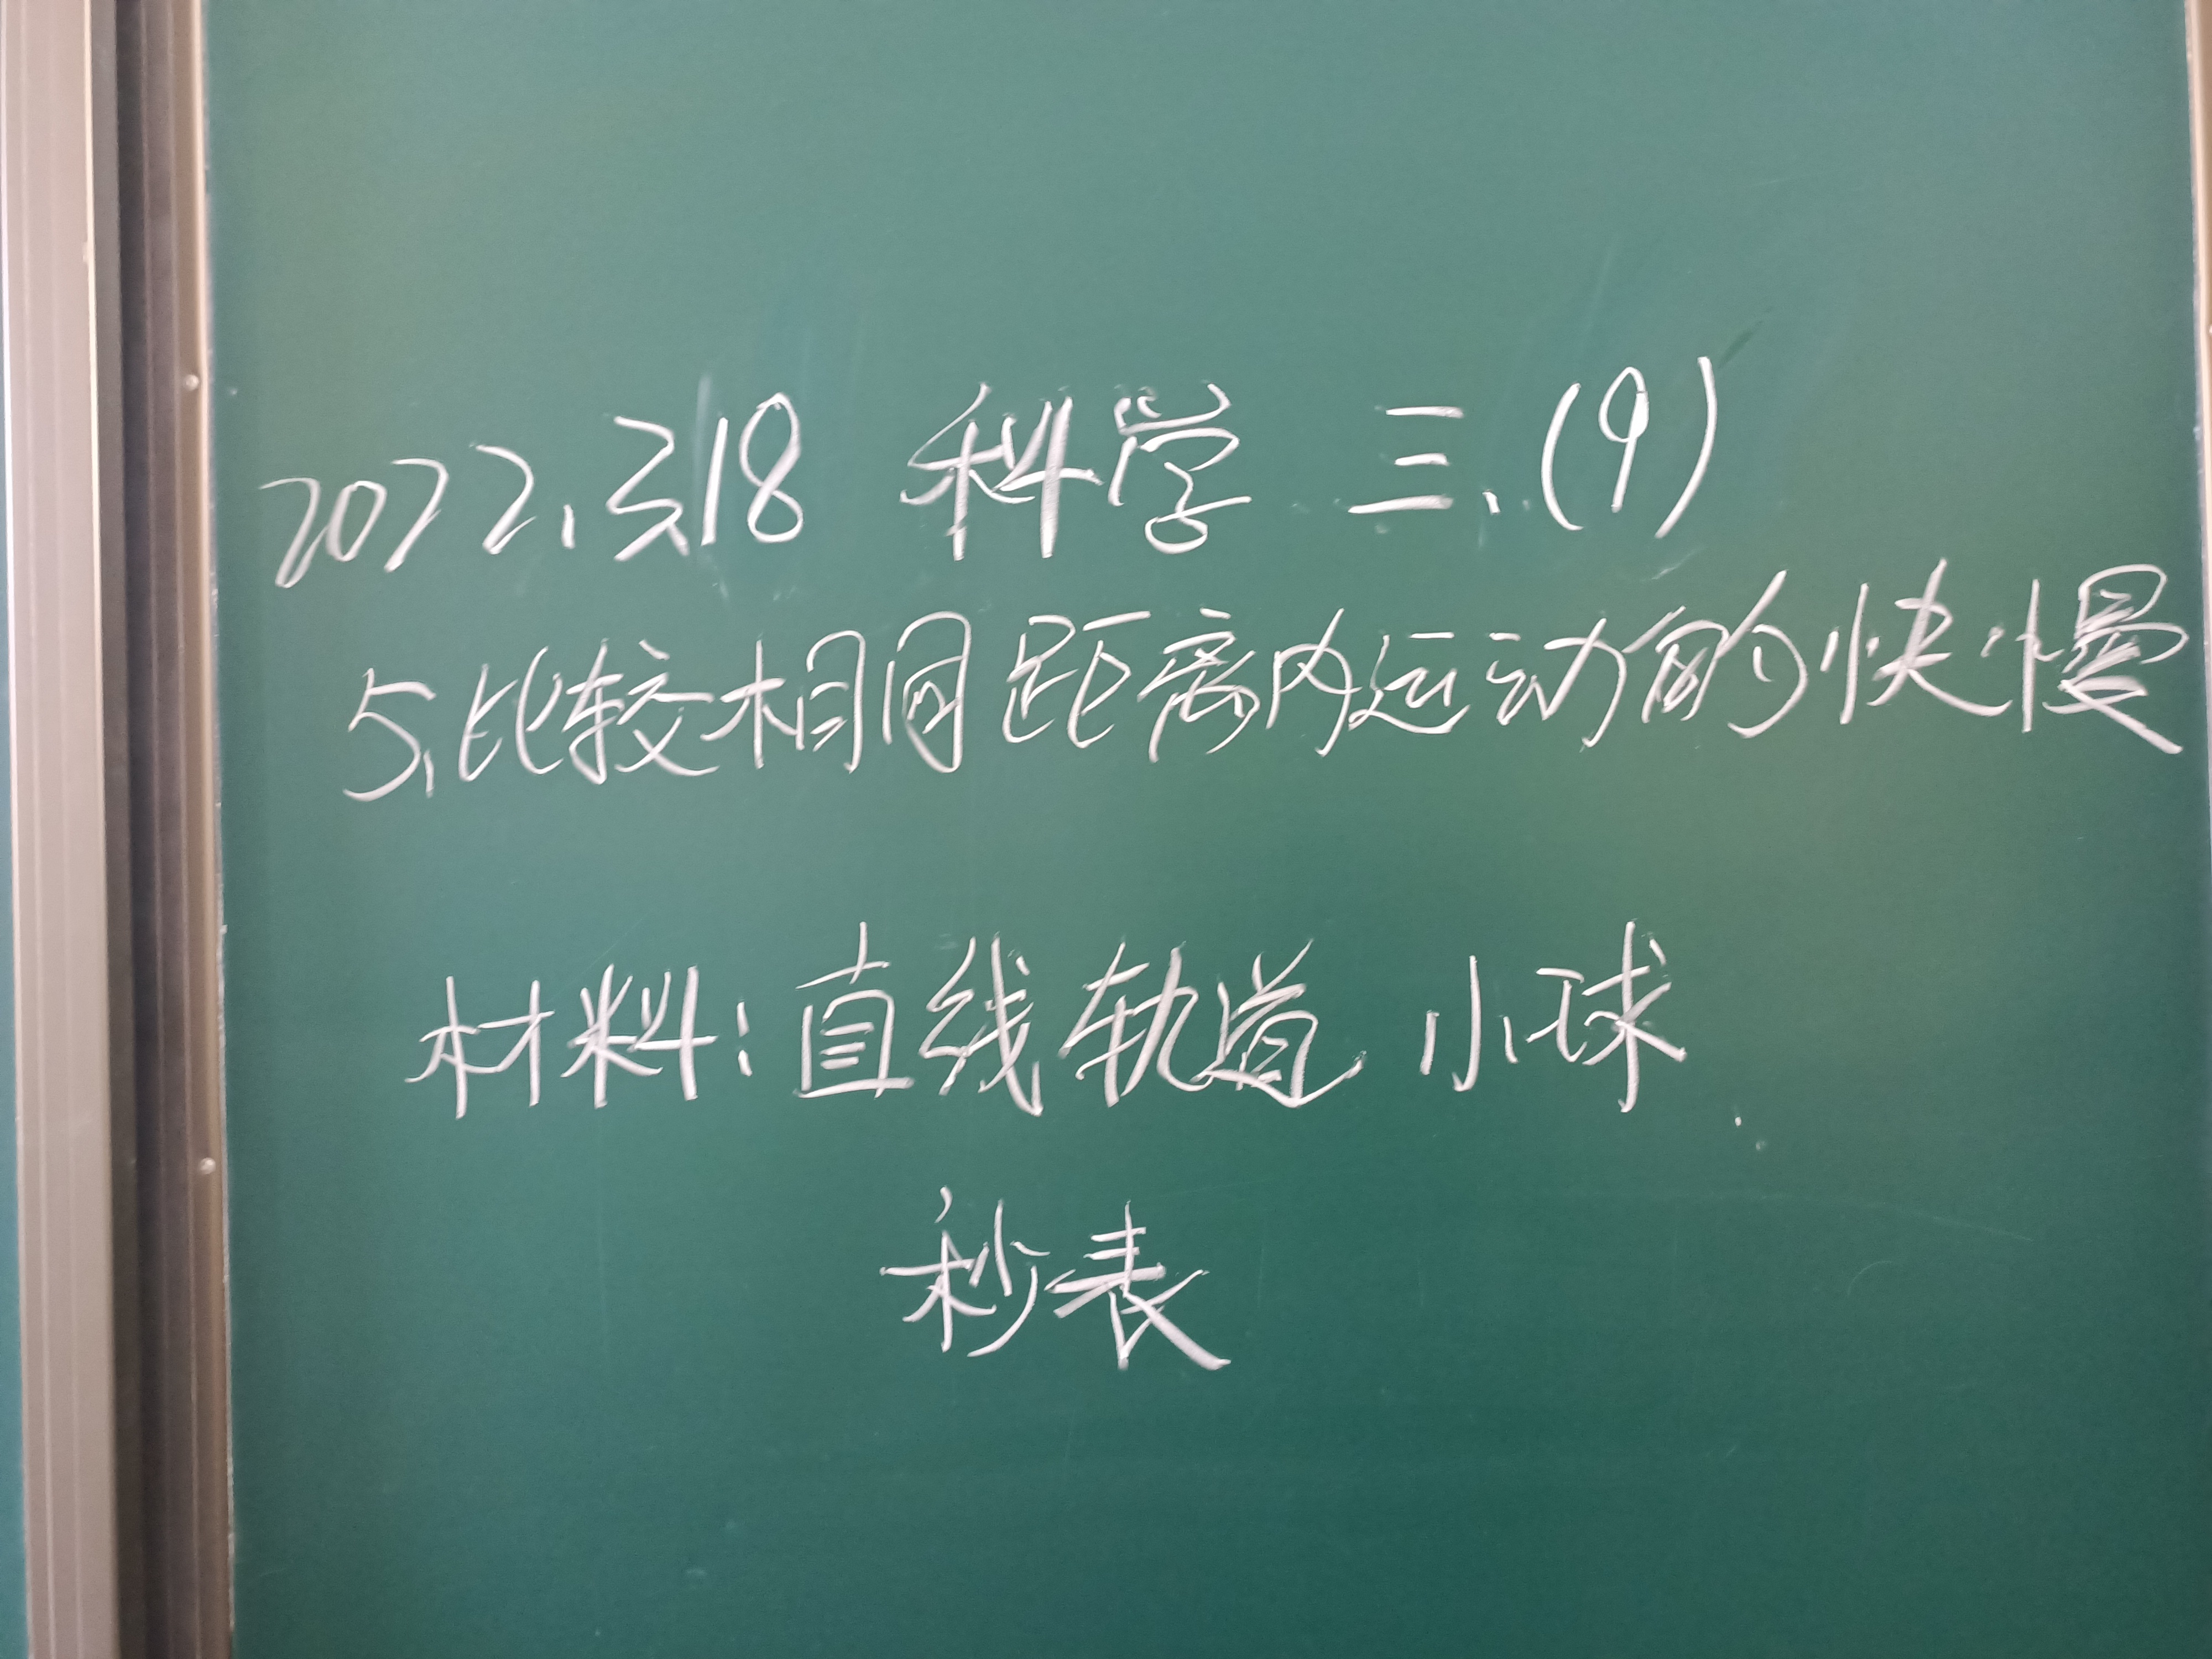 2022.3.18 科学 三.(9)
5.比较相同距离内运动的快慢
材料:直线轨道 小球
秒表